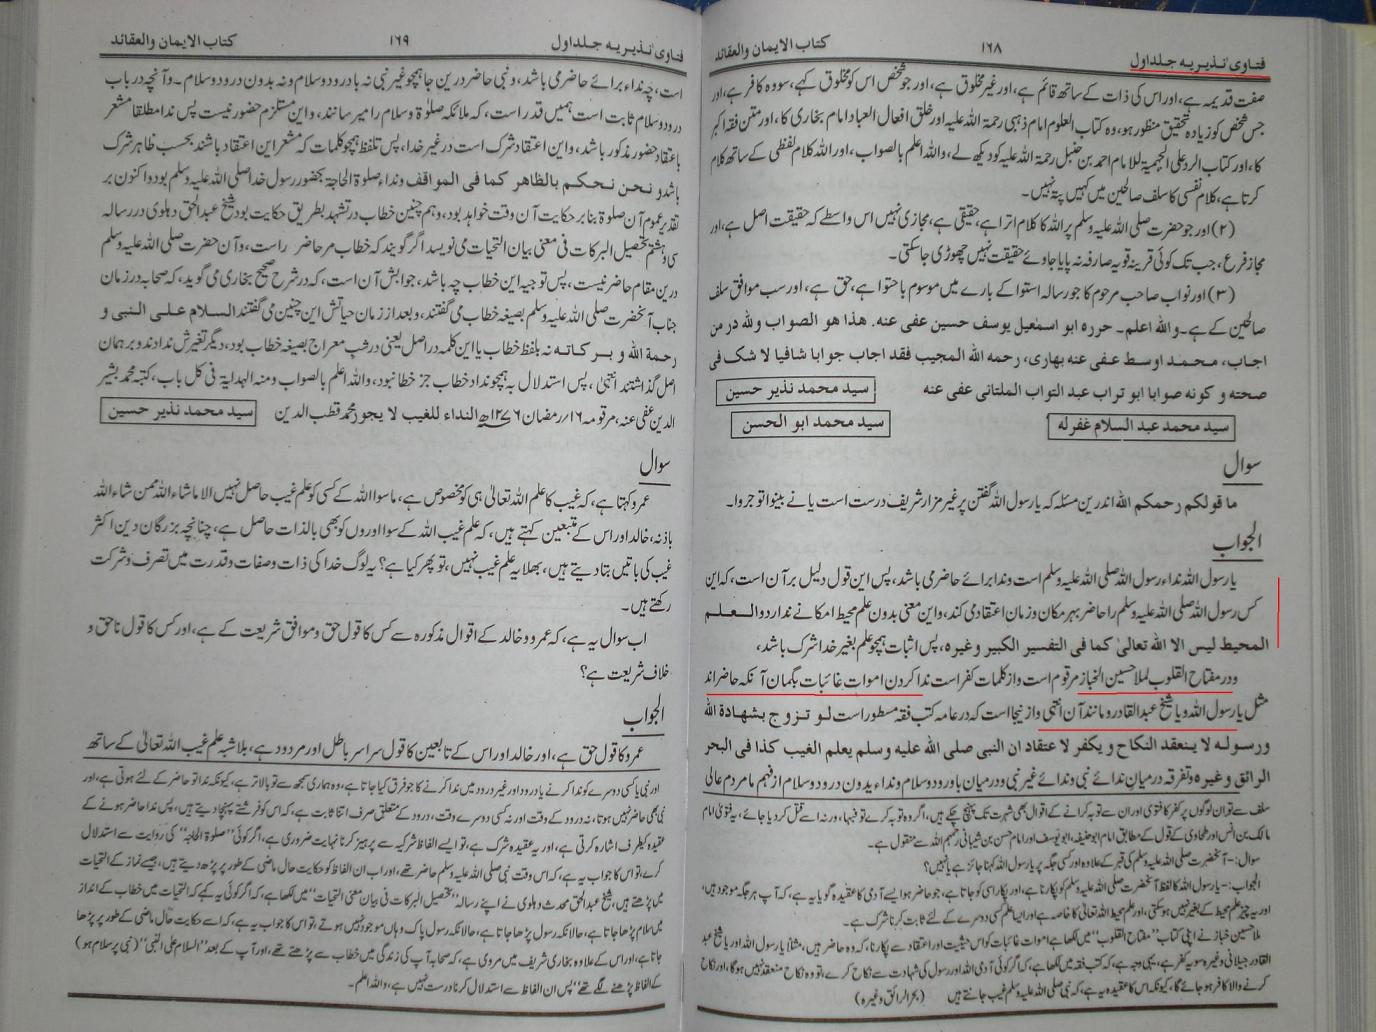 فتاوی نذیریہ جلد اول
۱۶۸
کتاب الایمان والعقائد
صفت قدیمہ ہے، اور اس کی ذات کے ساتھ قائم ہے، اور غیر مخلوق ہے، اور جو شخص اس کو مخلوق کہے، سو وہ کافر ہے، اور
جس شخص کو زیادہ تحقیق منظور ہو، وہ کتاب العلوم امام ذہبی رحمۃ اللہ علیہ اور خلق افعال العباد امام بخاری کا، اور متن فقہ اکبر
کا، اور کتاب الرد علی الجہمیۃ للامام احمد بن حنبل رحمۃ اللہ علیہ کو دیکھ لے، واللہ اعلم بالصواب، اور اللہ کلام لفظی کے ساتھ کلام
کرتا ہے، کلام نفسی کا سلف صالحین میں کہیں پتہ نہیں۔
(۲) اور جو حضرت صلی اللہ علیہ وسلم پر اللہ کا کلام اترا ہے، حقیقی ہے، مجازی نہیں اس واسطے کہ حقیقت اصل ہے، اور
مجاز فرع، جب تک کوئی قرینہ قویہ صارفہ نہ پایا جاوے حقیقت نہیں چھوڑی جاسکتی۔
(۳) اور نواب صاحب مرحوم کا جو رسالہ استوا کے بارے میں موسوم باحتوا ہے، حق ہے، اور سب موافق سلف
صالحین کے ہے۔ واللہ اعلم۔ حررہ ابو اسمٰعیل یوسف حسین عفی عنہ. ھذا ھو الصواب وللہ در من
اجاب، محمد اوسط عفی عنہ بھاری، رحمہ اللہ المجیب فقد اجاب جوابا شافیا لا شک فی
صحتہ و کونہ صوابا ابو تراب عبد التواب الملتانی عفی عنہ
سید محمد نذیر حسین
سید محمد عبد السلام غفرلہ
سید محمد ابو الحسن
سوال
ما قولکم رحمکم اللہ اندرین مسئلہ کہ یا رسول اللہ گفتن بر غیر مزار شریف درست است یا نے بینوا توجروا۔
الجواب
یا رسول اللہ نداء رسول اللہ صلی اللہ علیہ وسلم است وندا برائے حاضر می باشد، پس این قول دلیل بر آن است، کہ این
کس رسول اللہ صلی اللہ علیہ وسلم را حاضر بہر مکان و زمان اعتقاد می کند، و این معنی بدون علم محیط امکانے ندارد والعلم
المحیط لیس الا اللہ تعالیٰ کما فی التفسیر الکبیر وغیرہ، پس اثبات ہمچو علم بغیر خدا شرک باشد،
ودر مفتاح القلوب لملا حسین الخباز مرقوم است واز کلمات کفر است ندا کردن اموات غائبات بگمان آنکہ حاضر اند
مثل یا رسول اللہ ویا شیخ عبدالقادر ومانند آن انتہی وازینجا است کہ در عامہ کتب فقہ مسطور است لو تزوج بشھادۃ اللہ
ورسولہ لا ینعقد النکاح و یکفر لا عتقاد ان النبی صلی اللہ علیہ وسلم یعلم الغیب کذا فی البحر
الرائق وغیرہ وتفرقہ درمیان ندائے نبی وندائے غیر نبی ودرمیان باورود وسلام ونداء بدون درود وسلام از فہم ما مردم عالی
سلف سے تو ان لوگوں پر کفر کا فتوی اور ان سے توبہ کرانے کے اقوال بھی شہرت تک پہنچ چکے ہیں، اگر وہ توبہ کرے تو فبہا، ورنہ اسے قتل کر دیا جائے، یہ فتویٰ امام
مالک بن انس اور طحاوی کے قول کے مطابق امام ابو حنیفہ، ابو یوسف اور امام حسن بن شیبانی رحمہم اللہ سے منقول ہے۔
سوال:- آنحضرت صلی اللہ علیہ وسلم کی قبر کے علاوہ اور کسی جگہ پر یا رسول اللہ کہنا جائز ہے یا نہیں؟
الجواب:- یا رسول اللہ کا لفظ آنحضرت صلی اللہ علیہ وسلم کو پکارنا ہے، اور پکارا اسی کو جاتا ہے، جو حاضر ہو ایسے آدمی کا عقیدہ گویا یہ ہے، کہ آپ ہر جگہ موجود ہیں،
اور یہ چیز علم محیط کے بغیر نہیں ہو سکتی، اور علم محیط اللہ تعالیٰ کا خاصہ ہے اور ایسا علم کسی دوسرے کے لئے ثابت کرنا شرک ہے۔
ملا حسین خباز نے اپنی کتاب "مفتاح القلوب" میں لکھا ہے اموات غائبات کو اس حیثیت اور اعتقاد سے پکارنا، کہ وہ حاضر ہیں، مثلاً یا رسول اللہ اور یا شیخ عبد
القادر جیلانی وغیرہ سو یہ کفر ہے، یہی وجہ ہے، کہ کتب فقہ میں لکھا ہے، کہ اگر کوئی آدمی اللہ اور رسول کی شہادت سے نکاح کرے، تو وہ نکاح منعقد نہیں ہوگا، اور نکاح
کرنے والا کافر ہو جائے گا، کیونکہ اس کا عقیدہ یہ ہے، کہ نبی صلی اللہ علیہ وسلم غیب جانتے ہیں (بحر الرائق وغیرہ)
فتاوی نذیریہ جلد اول
۱۶۹
کتاب الایمان والعقائد
است، چہ نداء برائے حاضر می باشد، ونبی حاضر درین جا ہمچو غیر نبی نہ با درود وسلام ونہ بدون درود وسلام۔ وآنچہ در باب
درود وسلام ثابت است ہمیں قدر است، کہ ملائکہ صلوٰۃ وسلام را میرسانند، و این مستلزم حضور نیست پس ندا مطلقا مشعر
باعتقاد حضور مذکور باشد، و این اعتقاد شرک است در غیر خدا، پس تلفظ ہمچو کلمات کہ مشعر این اعتقاد باشند بحسب ظاہر شرک
باشد و نحن نحکم بالظاھر کما فی المواقف ونداء صلوۃ الحاجۃ بحضور رسول خدا صلی اللہ علیہ وسلم بود واکنون بر
تقدیر عموم آن صلوۃ بنابر حکایت آن وقت خواہد بود، وہم چنین خطاب در تشہد بطریق حکایت بود شیخ عبدالحق دہلوی در رسالہ
سی وہشتم تحصیل البرکات فی معنی بیان التحیات می نویسد اگر گویند کہ خطاب مر حاضر راست، وآن حضرت صلی اللہ علیہ وسلم
درین مقام حاضر نیست، پس توجیہ این خطاب چہ باشد، جوابش آن است، کہ در شرح صحیح بخاری می گوید، کہ صحابہ در زمان
جناب آنحضرت صلی اللہ علیہ وسلم بصیغہ خطاب می گفتند، وبعد از زمان حیاتش این چنین می گفتند السلام علی النبی و
رحمۃ اللہ و برکاتہ نہ بلفظ خطاب یا این کلمہ در اصل یعنی در شب معراج بصیغہ خطاب بود، دیگر تغیرش ندادند وبرہمان
اصل گذاشتند انتہیٰ، پس استدلال بہ ہمچو نداد خطاب جز خطا نبود، واللہ اعلم بالصواب ومنہ الہدایۃ فی کل باب، کتبہ محمد بشیر
الدین عفی عنہ، مرقومہ ۱۶/ رمضان ۱۲۷۶ھ النداء للغیب لا یجوز محمد قطب الدین
سید محمد نذیر حسین
سوال
عمرو کہتا ہے، کہ غیب کا علم اللہ تعالیٰ ہی کو مخصوص ہے، ماسوا اللہ کے کسی کو علم غیب حاصل نہیں الا ماشاء اللہ ممن شاء اللہ
باذنہ، خالد اور اس کے متبعین کہتے ہیں، کہ علم غیب اللہ کے سوا اوروں کو بھی بالذات حاصل ہے، چنانچہ بزرگان دین اکثر
غیب کی باتیں بتا دیتے ہیں، بھلا یہ علم غیب نہیں، تو پھر کیا ہے؟ یہ لوگ خدا کی ذات وصفات وقدرت میں تصرف وشرکت
رکھتے ہیں۔
اب سوال یہ ہے، کہ عمرو و خالد کے اقوال مذکورہ سے کس کا قول حق وموافق شریعت کے ہے، اور کس کا قول ناحق و
خلاف شریعت ہے؟
الجواب
عمرو کا قول حق ہے، اور خالد اور اس کے تابعین کا قول سراسر باطل اور مردود ہے، بلاشبہ علم غیب اللہ تعالیٰ کے ساتھ
اور نبی یا کسی دوسرے کو ندا کرنے یا درود اور غیر درود میں ندا کرنے کا جو فرق کیا جاتا ہے، وہ ہماری سمجھ سے تو بالاتر ہے، کیونکہ ندا تو حاضر کے لئے ہوتی ہے، اور
نبی بھی حاضر نہیں ہوتا، نہ درود کے وقت اور نہ کسی دوسرے وقت، درود کے متعلق صرف اتنا ثابت ہے، کہ اس کو فرشتے پہنچا دیتے ہیں، پس ندا حاضر ہونے کے
عقیدہ کیطرف اشارہ کرتی ہے، اور یہ عقیدہ شرک ہے، تو ایسے الفاظ شرکیہ سے پرہیز کرنا نہایت ضروری ہے، اگر کوئی "صلوۃ الحاجۃ" کی روایت سے استدلال
کرے، تو اس کا جواب یہ ہے، کہ اس وقت نبی صلی اللہ علیہ وسلم حاضر تھے، اور اب ان الفاظ کو حکایت حال ماضی کے طور پر پڑھ دیتے ہیں، جیسے نماز کے التحیات
میں پڑھتے ہیں، شیخ عبدالحق محدث دہلوی نے اپنے رسالہ "تحصیل البرکات فی بیان معنی التحیات" میں لکھا ہے، کہ اگر کوئی یہ کہے کہ التحیات میں خطاب کے انداز
میں سلام پڑھا جاتا ہے، حالانکہ رسول پاک وہاں موجود نہیں ہوتے، تو اس کا جواب یہ ہے، کہ اسے حکایت حال ماضی کے طور پر پڑھا
جاتا ہے، اور اس کے علاوہ بخاری شریف میں مروی ہے، کہ صحابہ آپ کی زندگی میں خطاب سے پڑھتے تھے، اور آپ کے بعد "السلام علی النبی" (نبی پر سلام ہو)
کے الفاظ پڑھنے لگے تھے" پس ان الفاظ سے استدلال کرنا درست نہیں ہے، واللہ اعلم۔